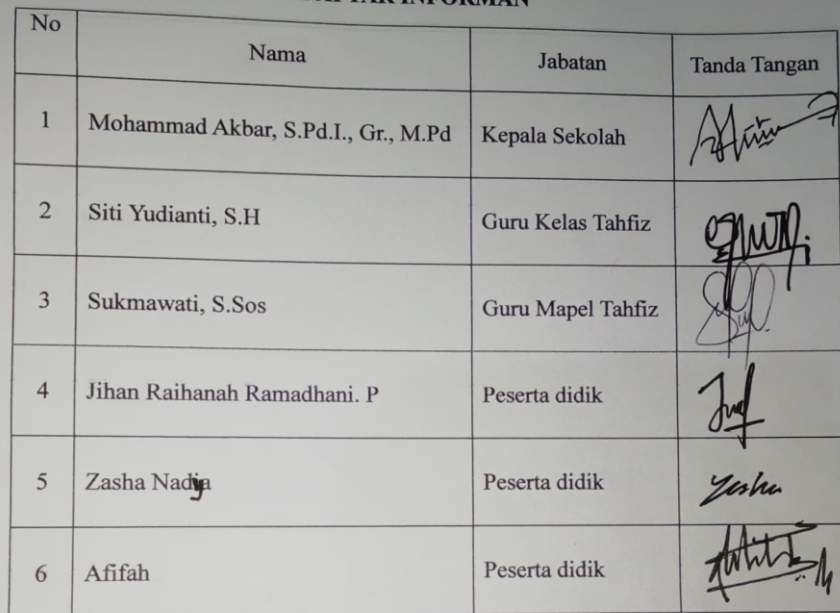 DAFTAR INFORMAN
No Nama Jabatan Tanda Tangan
1 Mohammad Akbar, S.Pd.I., Gr., M.Pd Kepala Sekolah
2 Siti Yudianti, S.H Guru Kelas Tahfiz
3 Sukmawati, S.Sos Guru Mapel Tahfiz
4 Jihan Raihanah Ramadhani. P Peserta didik
5 Zasha Nadya Peserta didik Zasha
6 Afifah Peserta didik